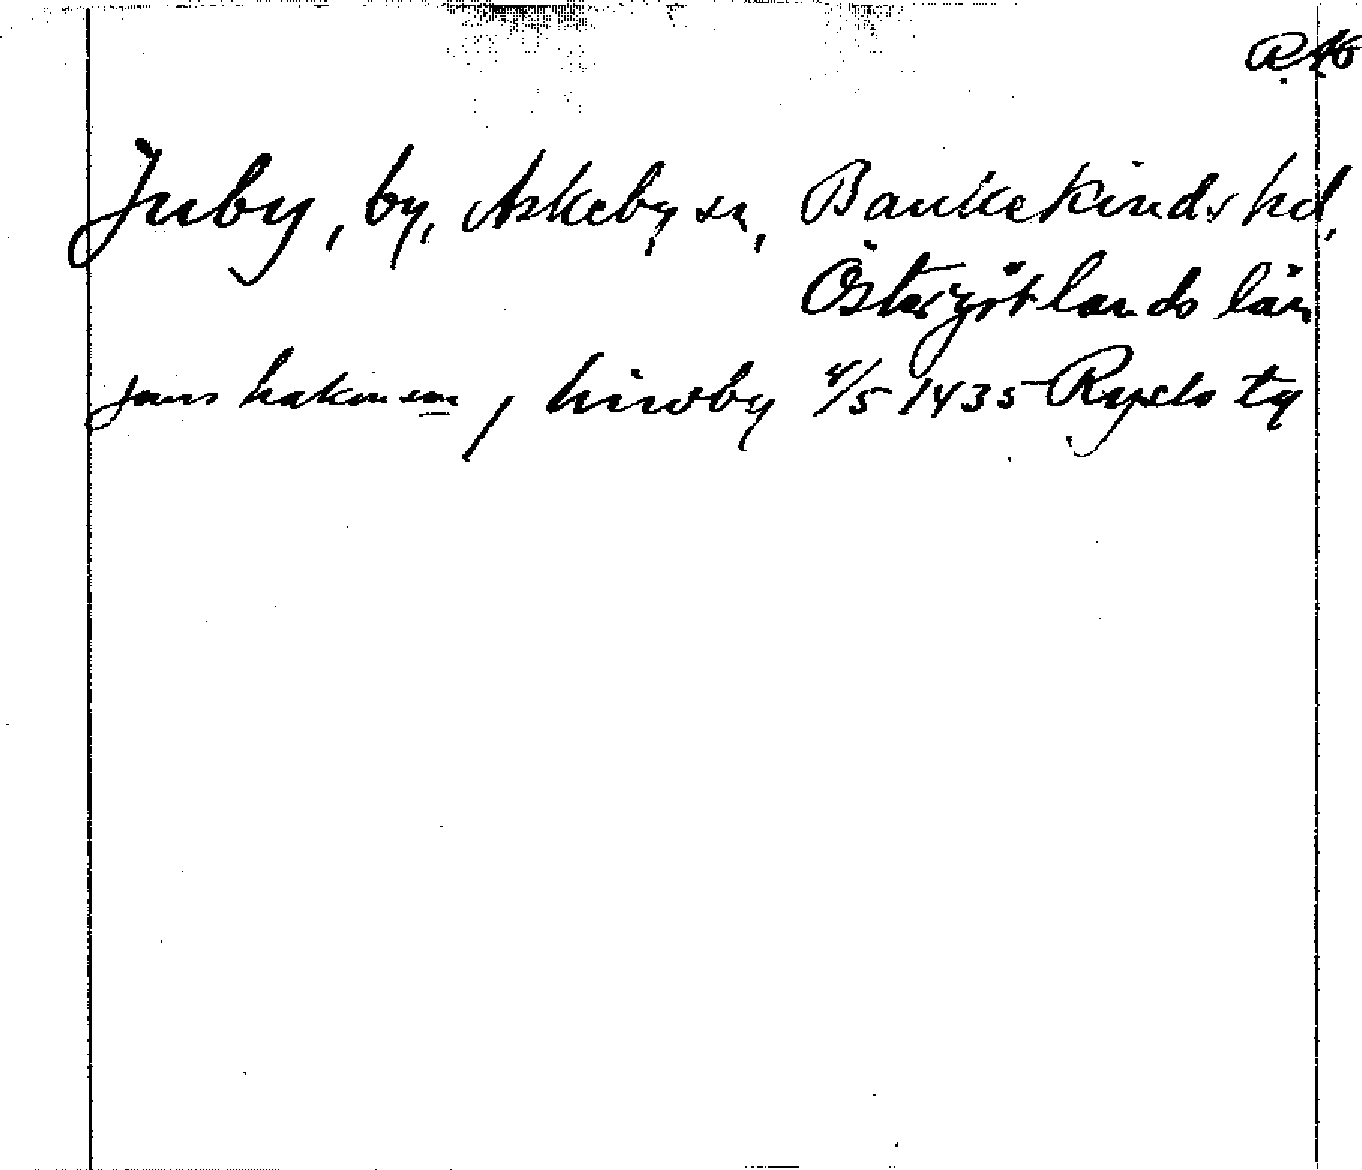 Juby, by, Askeby sn, Bankekinds hd,
Östergötlands län
jons hakonson, hiwby 4/5 1435 Ryds